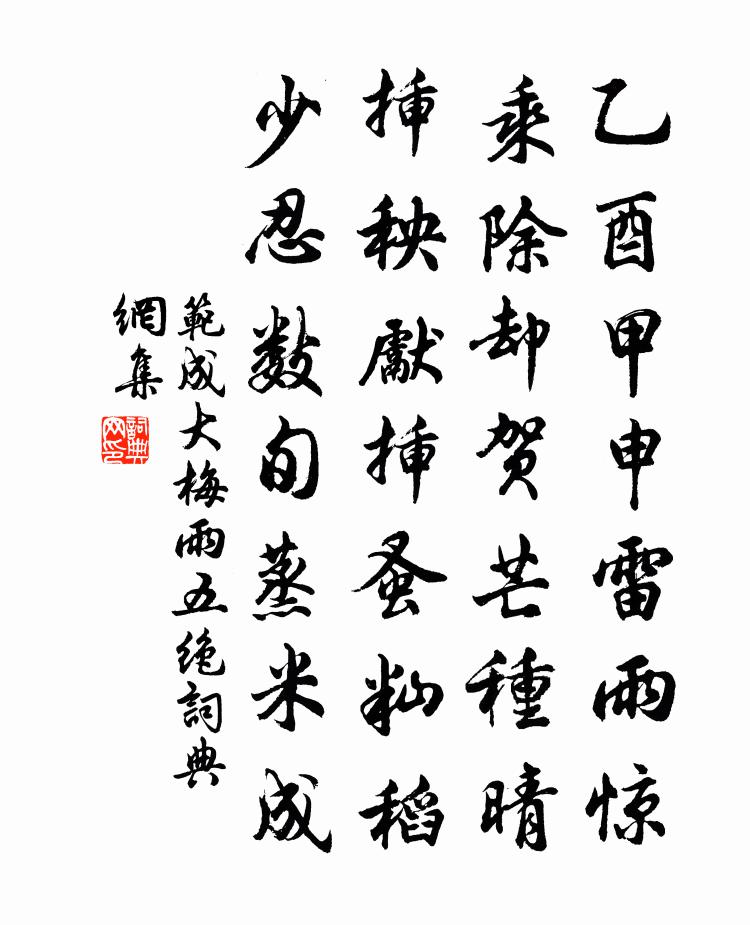 乙酉甲申雷雨惊
乘除却贺芒種晴
挿秧獻挿蚤籼稻
少忍數旬蒸米成
範成大梅雨五绝詞典
網集
詞典
网印